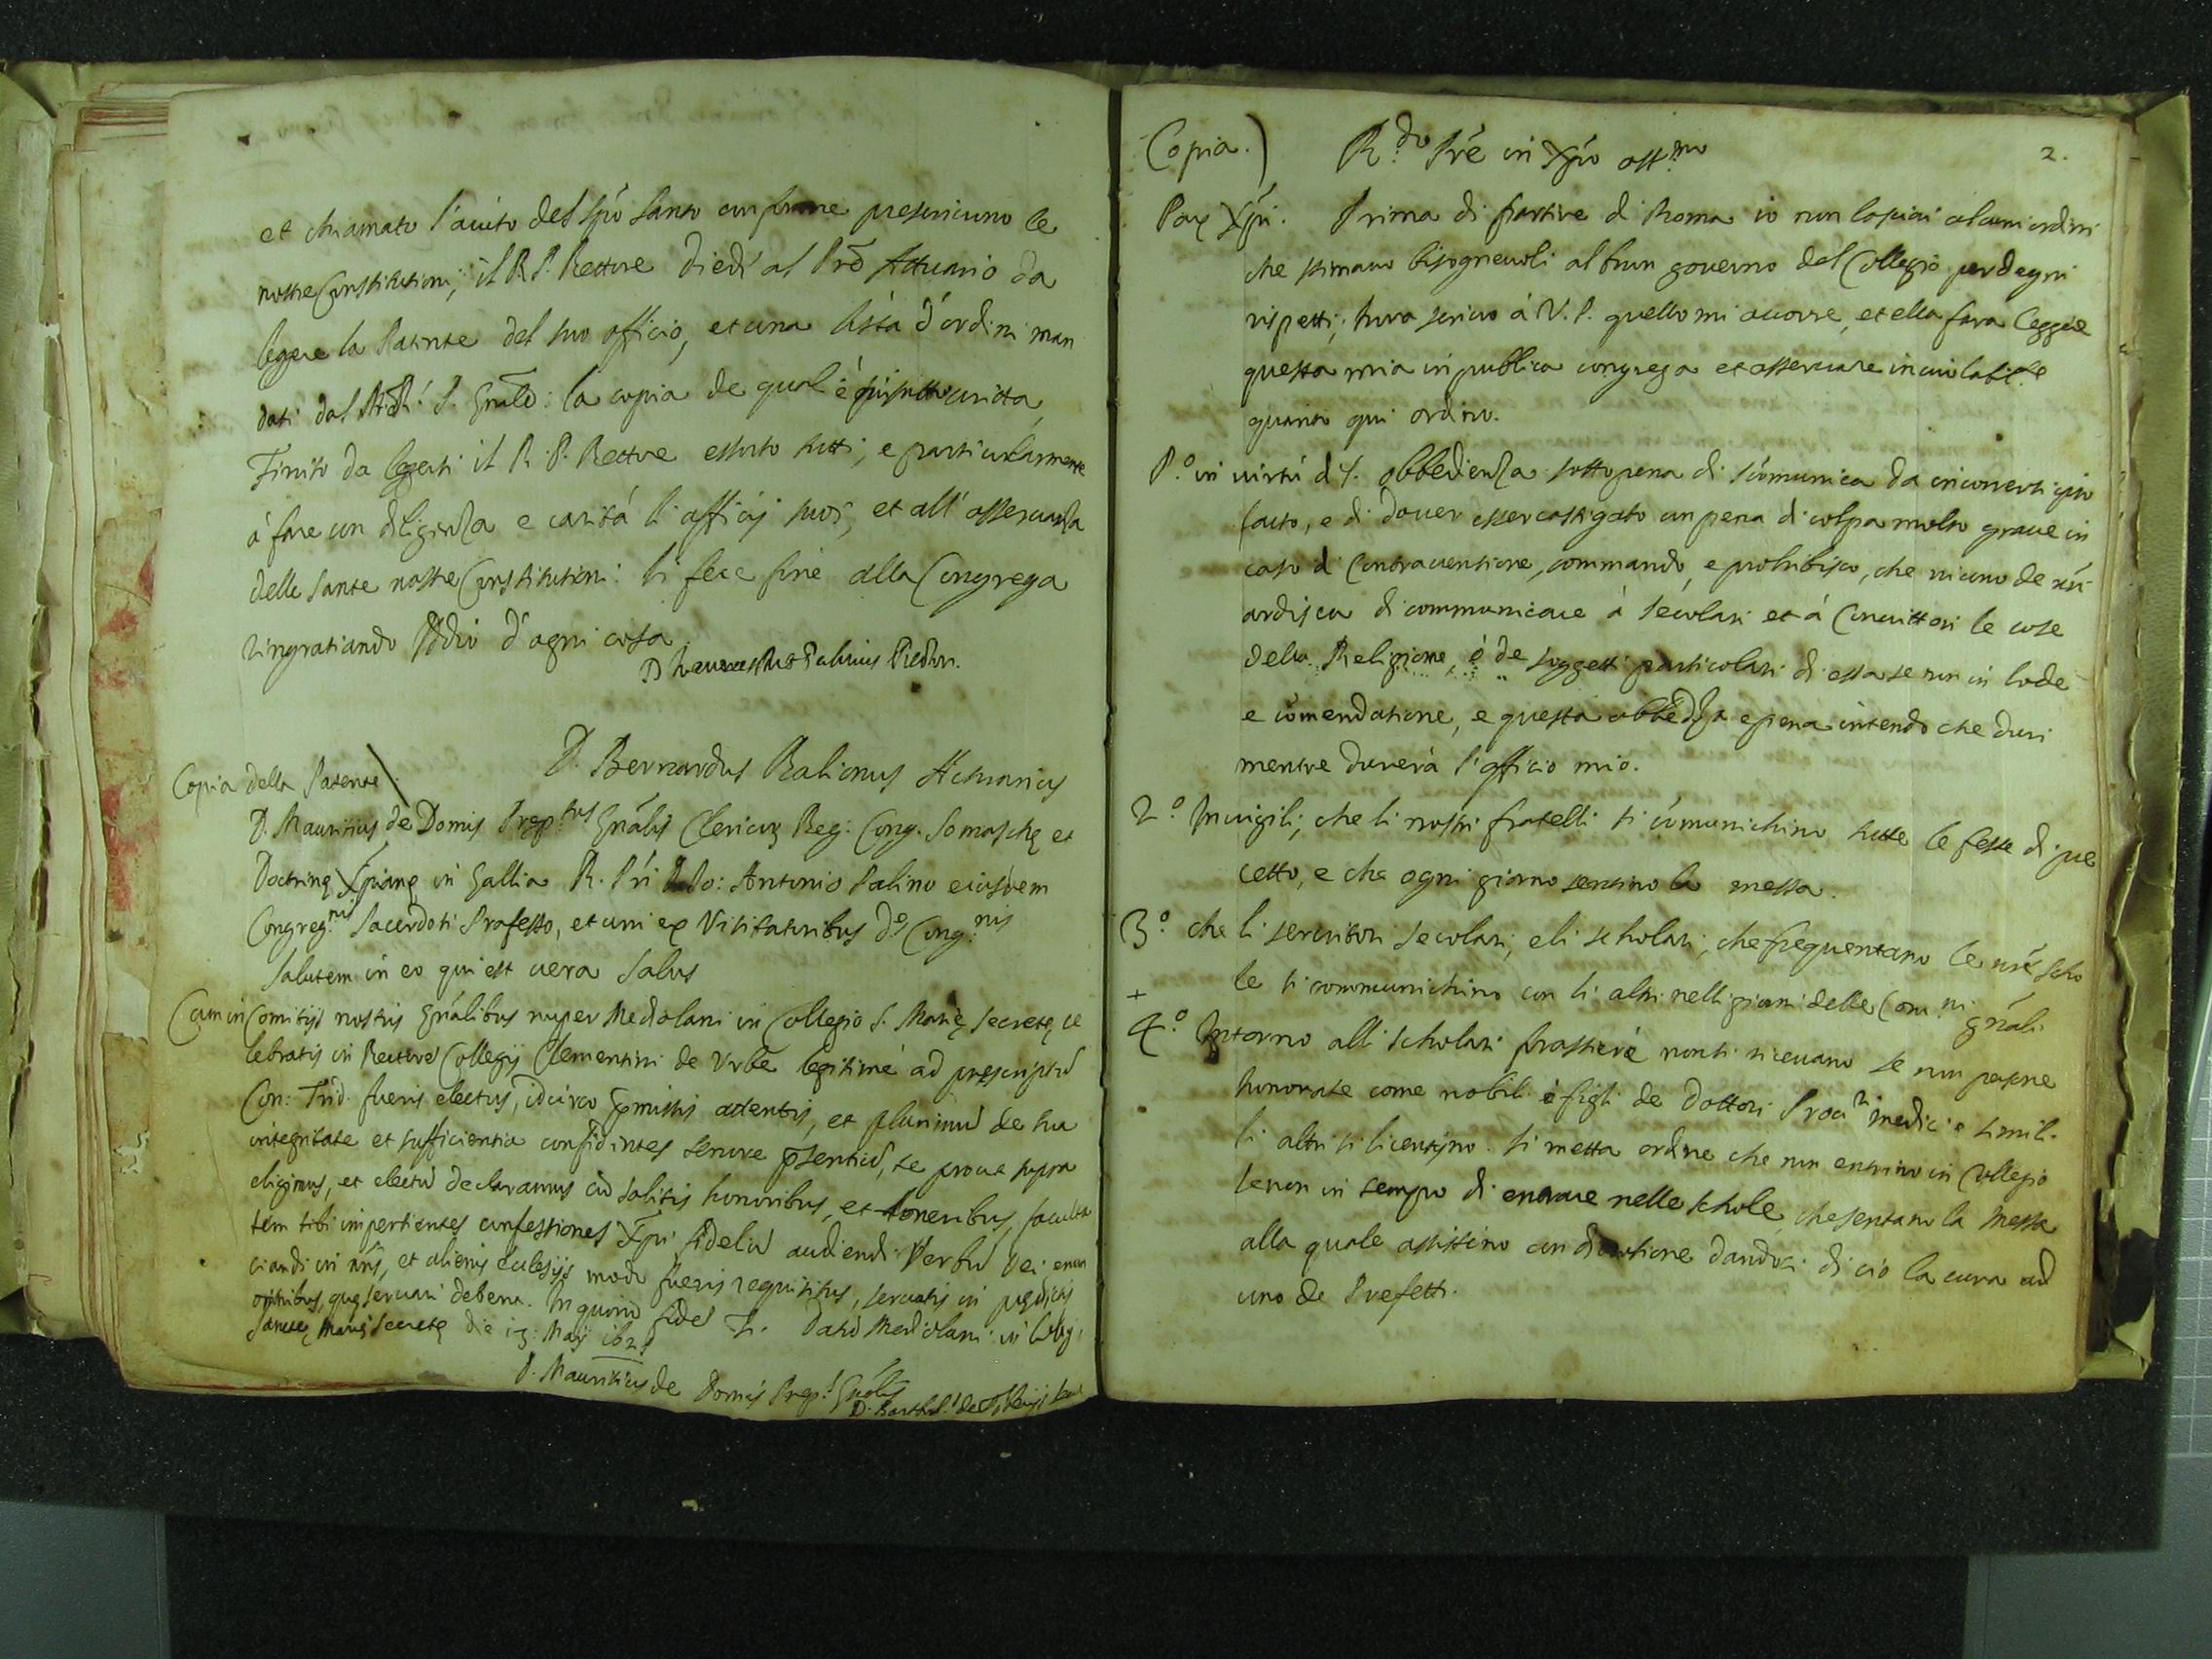 et chiamato l'aiuto del Spõ Santo conforme prescriuono le
nostre Constitutioni, il R. P. Rettore diedi al Prẽ Attuario da
legere la Patente del suo officio, et una lista d'ordini man
dati dal P. Gñale: la copia de quali è
Finito da legerli il R. P. Rettore essorto tutti, e particolarmente
à fare con diligenza e carità li officij suoi, et all' osseruanza
delle Sante nostre Constitutioni: Si fece fine alla Congrega
ringratiando Iddio d'ogni cosa.
D. Bernardus Actuarius
Copia della Patente
D. Mauritius de Domis Prep.tus Gñalis Clericoꝝ Reg: Cong. Somaschę et
Doctrinę Xpianę in Gallia R. Pri Do: Antonio Palino eiusdem
Congreg.nis Sacerdoti Professo, et uni ex Visitatoribus d.ę Cong.nis
Salutem in eo qui est uera Salus
Cum in Comitijs nostris Gñalibus nuper Mediolani in Collegio S. Marię Secretę ce
lebratis in Rectorẽ Collegij Clementini de Vrbe legitimè ad prescriptũ
Con: Trid. fueris electus, idcirco pmissis attentis, et plurimũ de tua
integritate et sufficientia confidentes tenore pñtium, te prout supra
eligimus, et electũ declaramus cũ solitis honoribus, et oneribus, faculta
tem tibi impertientes confessiones Xpi fideliũ audiendi Verbũ Dei enun
ciandi in nr̃is, et alienis ecclesijs modo fueris requisitus, seruatis in prędictis
omnibus, quę seruari debent. In quorũ fidẽ &. Datũ Mediolani in Colleg.
Sanctę Marię Secretę die 13. Maij 1621
D. Mauritius de Domis Prep.s Gñalis
Copia.) R.do Prẽ in Xpõ oss.mo
2.
Pax Xpi. Prima di partire di Roma io non lasciai alcuni ordini
che stimauo bisogneuoli al buon gouerno del Collegio per degni
rispetti; hora scriuo à V. P. quello mi occorre, et ella fara leggere
questa mia in publica congrega et osseruare inuiolabil.te
quanto qui ordino.
P.o in uirtù di S. obbedienza sotto pena di scomunica da incorrersi ipso
facto, e di douer esser castigato con pena di colpa molto graue in
caso di Contrauentione, commando, e prohibisco, che niuno de nr̃i
ardisca di communicare à Secolari et à Conuittori le cose
della Religione, ò de soggetti particolari di essa se non in lode
e comendatione, e questa obbedza e pena intendo che duri
mentre durerà l'officio mio.
2.o Inuigili, che li nostri fratelli si cõmunichino tutte le feste di pre
cetto, e che ogni giorno sentino la messa.
3.o che li seruitori secolari, e li scholari, che frequentano le nr̃e scho
le si communichino con li altri nelli giorni delle Com.ni gñali.
+
4.o Intorno alli scholari forastieri non si riceuano se non persone
honorate come nobili ò figli de Dottori Proc.ri medici e simili.
li altri si licentijno. Si metta ordine che non entrino in Collegio
senon in tempo di entrare nelle schole, che sentano la Messa
alla quale assistino con diuotione dandosi di ciò la cura ad
uno de Prefetti.